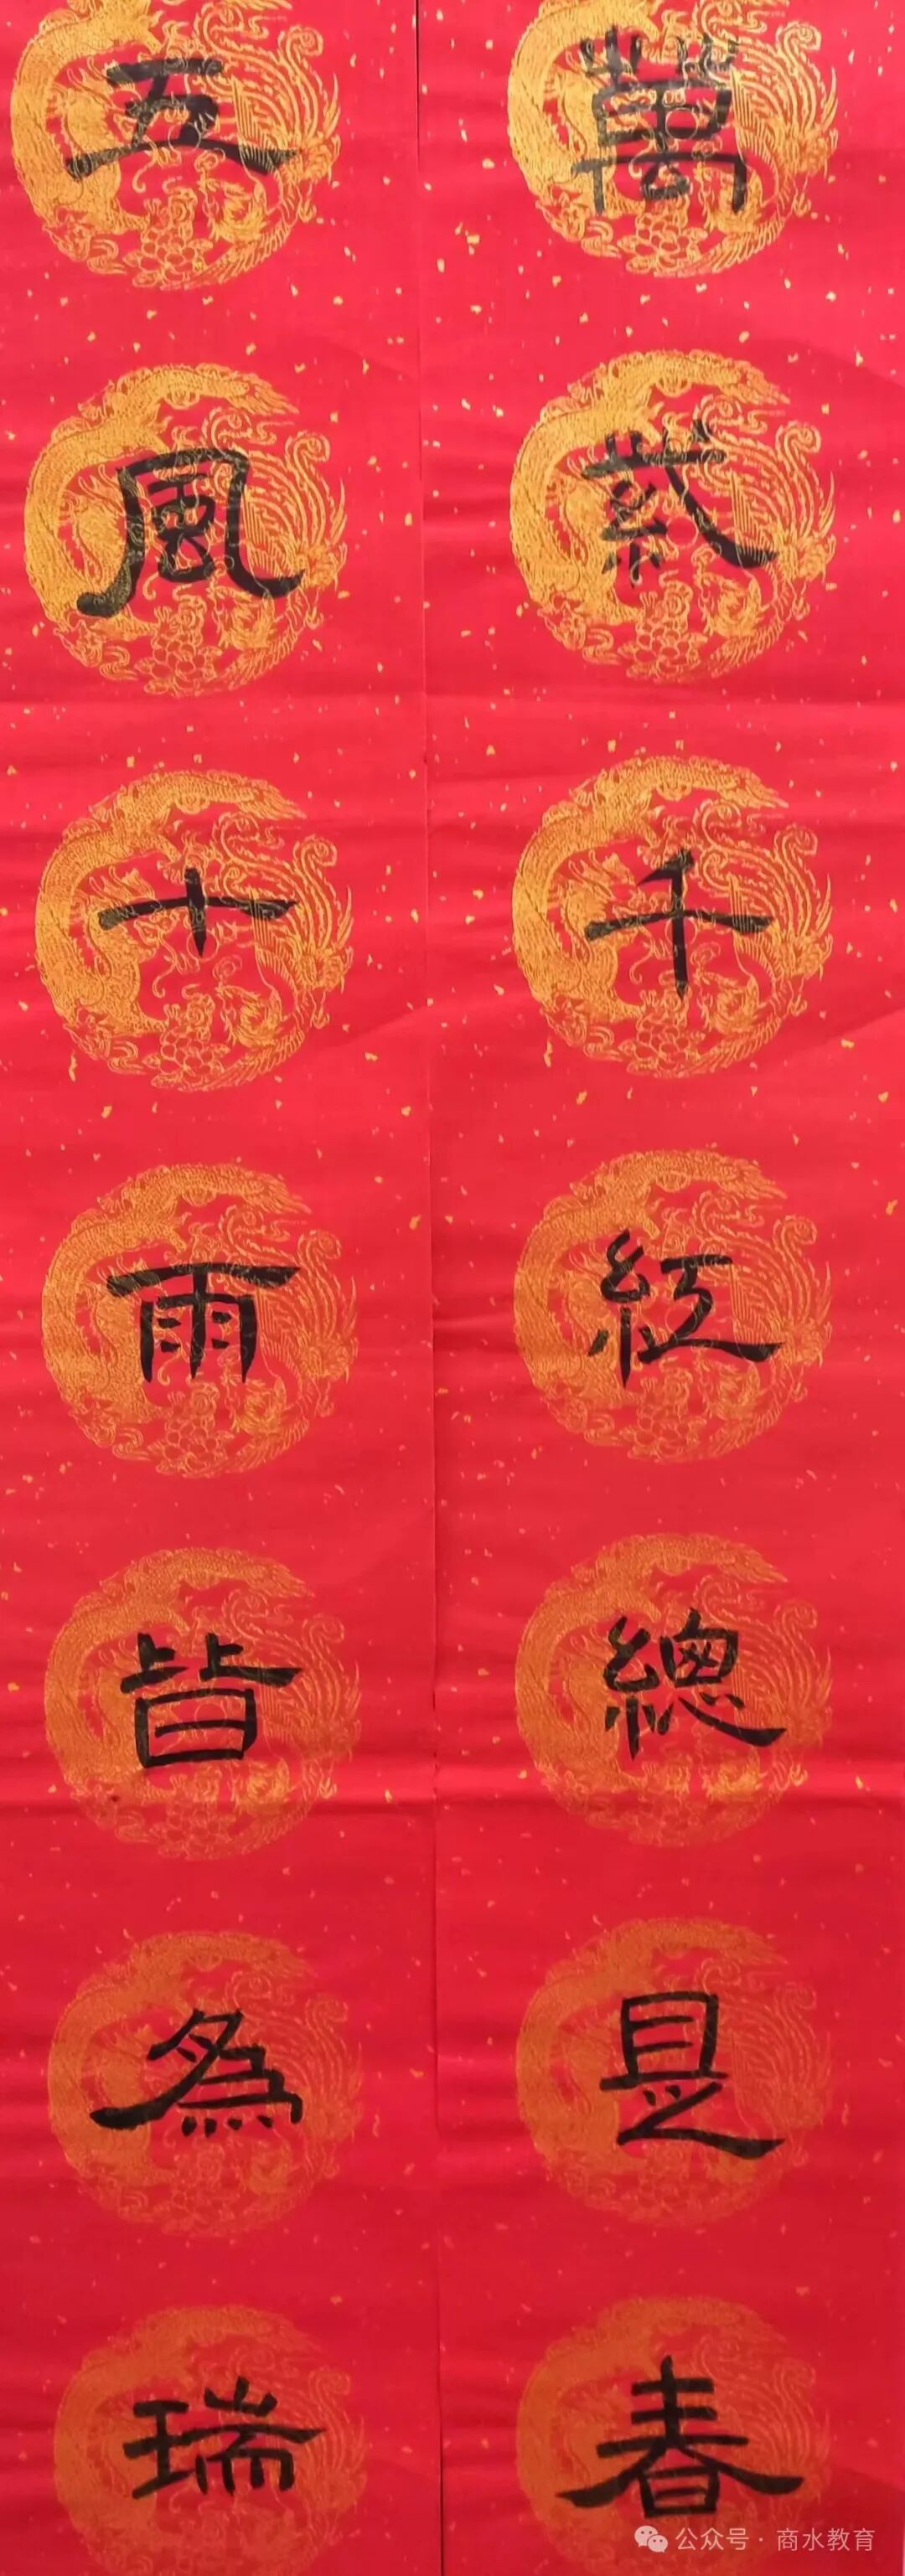 萬紫千紅總是春
五風十雨皆為瑞
公众号·商水教育